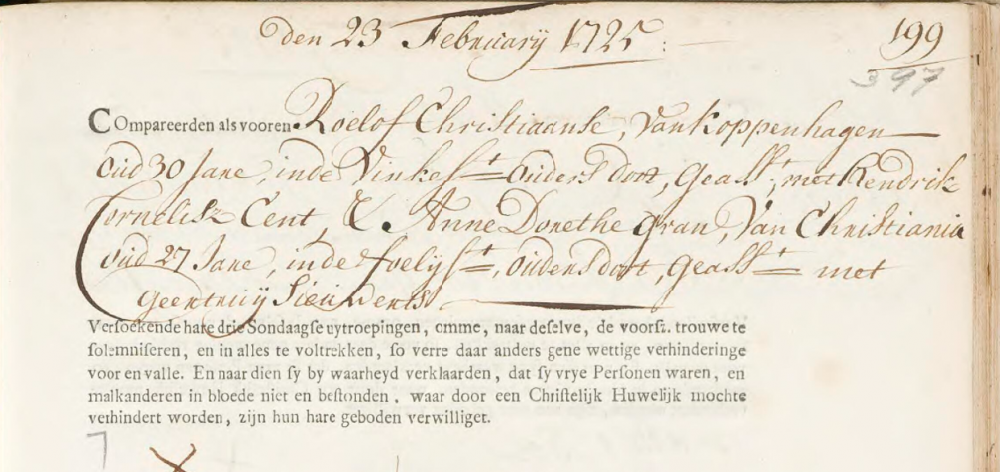 den 23 February 1725:
199
397
COmpareerden als vooren Roelof Christiaanse, van koppenhagen
oud 30 Jare, inde Vinkest= ouders doot, geasst, met Hendrik
Cornelisz Cent, & Anne Dorethe Gran, van Christiania
oud 27 Jare, inde foelyst=, ouders doot, geasst= met
geertruij Sieuwerts
Versoekende hare drie Sondaagse uytroepingen, omme, naar deselve, de voorsz. trouwe te
solemniseren, en in alles te voltrekken, so verre daar anders gene wettige verhinderinge
voor en valle. En naar dien sy by waarheyd verklaarden, dat sy vrye Personen waren, en
malkanderen in bloede niet en bestonden, waar door een Christelijk Huwelijk mochte
verhindert worden, zijn hun hare geboden verwilliget.